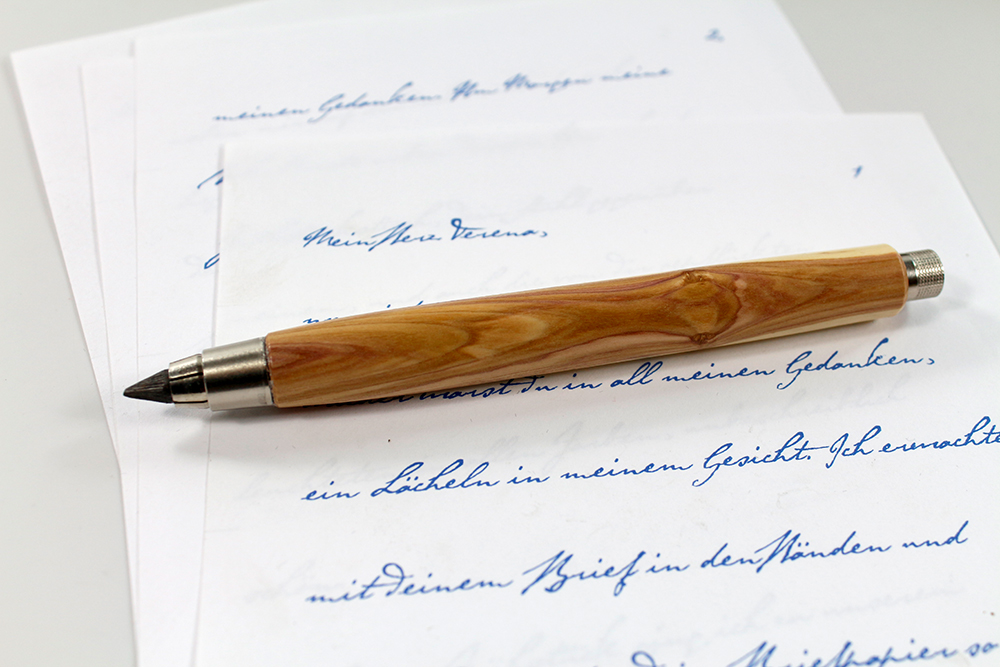 2
meinen Gedanken. Am Morgen meine
1
Mein Herz Verena,
warst Du in all meinen Gedanken,
ein Lächeln in meinem Gesicht. Ich erwachte
mit deinem Brief in den Händen und
Briefpapier so